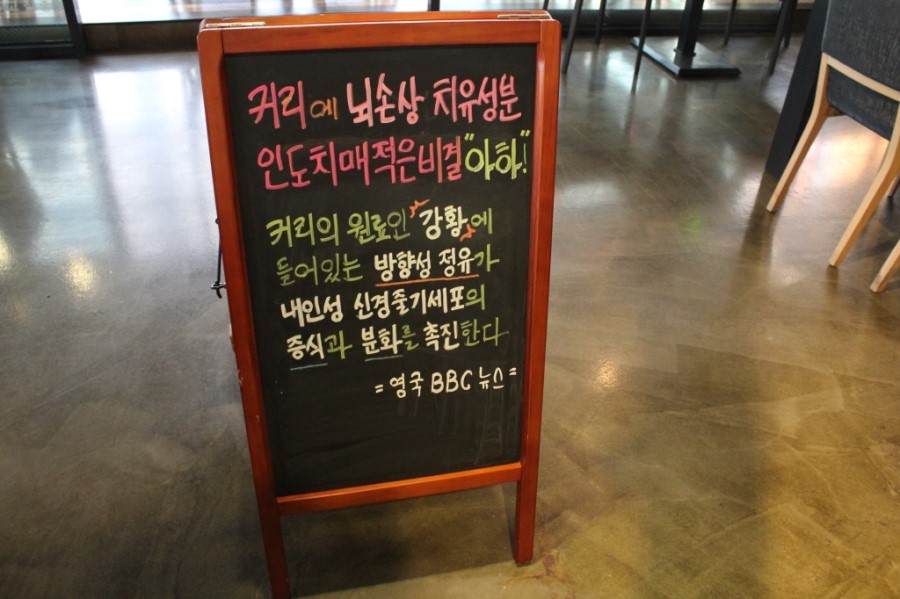 커리에 뇌손상 치유성분
인도치매적은비결 "아하!"
커리의 원료인 강황에
들어있는 방향성 정유가
내인성 신경줄기세포의
증식과 분화를 촉진한다
= 영국 BBC 뉴스 =